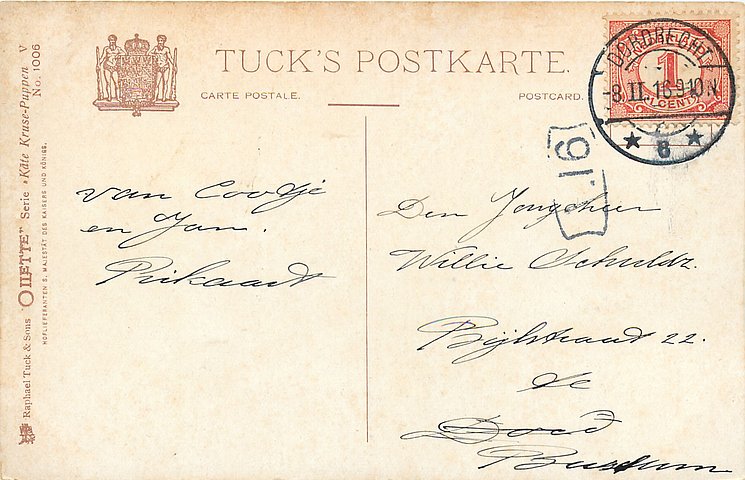 TUCK'S POSTKARTE.
CARTE POSTALE.
POSTCARD.
Raphael Tuck & Sons "OILETTE" Serie "Käte Kruse-Puppen V
No. 1006
HOFLIEFERANTEN S. MAJESTÄT DES KAISERS UND KÖNIGS.
DORDRECHT
-8.II.16.9-10.V
★ 8 ★
1
CENT
91
van Coosje
en Jan.
Prikaart
Den Jongeheer
Willie Schuldz.
Bijlstraat 22.
te
Dord
Bussum